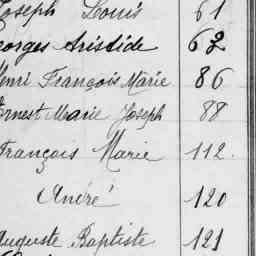 Joseph Louis 61
Georges Aristide 62
Henri François Marie 86
Ernest Marie Joseph 88
François Marie 112.
André 120
Auguste Baptiste 121